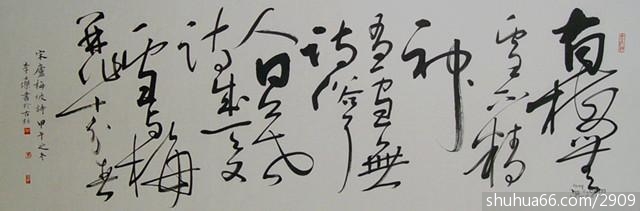 有梅無
雪不精
神
有雪無
詩俗了
人日暮
詩成天又
雪與梅
並作十分春
宋盧梅坡詩甲午之冬
李傑書於古
shuhua66.com/2909